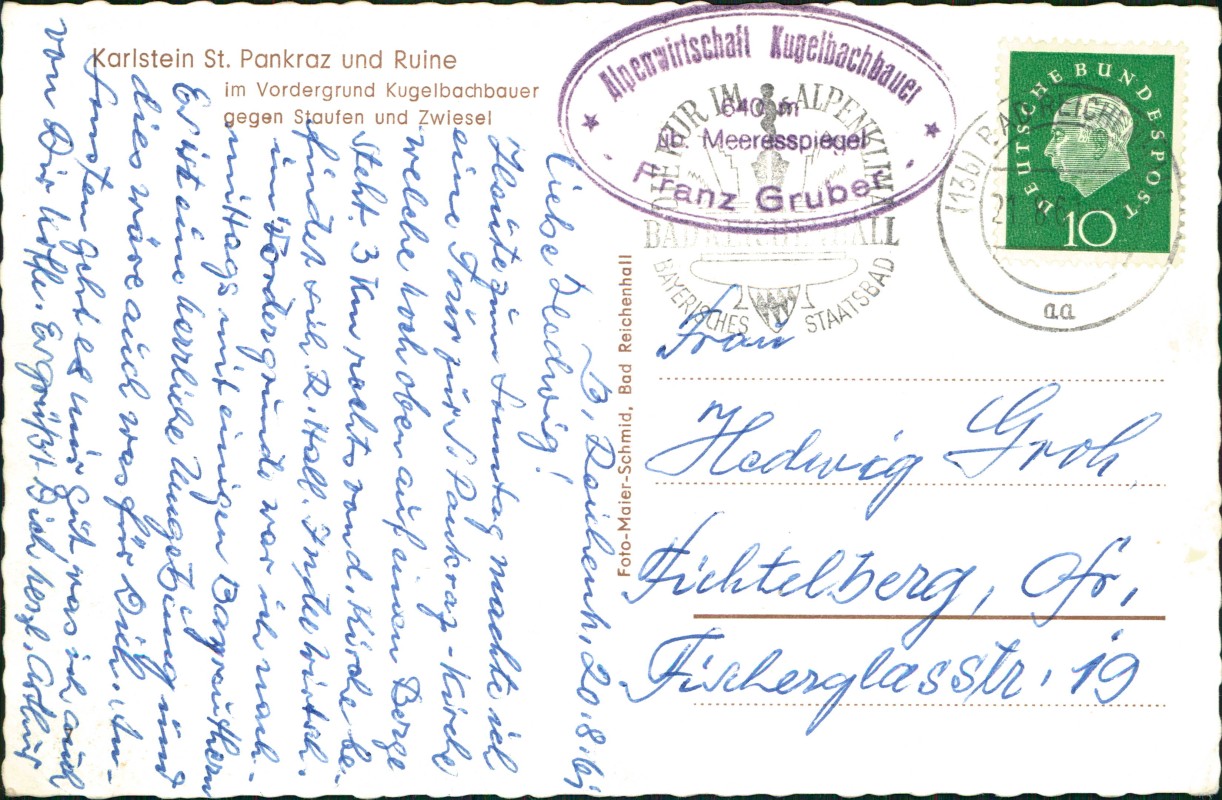 Karlstein St. Pankraz und Ruine
im Vordergrund Kugelbachbauer
gegen Staufen und Zwiesel
Alpenwirtschaft Kugelbachbauer
640 m
üb. Meeresspiegel
Franz Gruber
DIE KUR IM ALPENKLIMA
BAD REICHENHALL
BAYERISCHES STAATSBAD
DEUTSCHE BUNDESPOST
10
(136) BAD REICHENHALL
aa
B. Reichenh, 20.8.61
Liebe Hedwig!
Heute zum Sonntag machte ich
eine Tour zur St Pankraz-Kirche
welche hoch oben auf einem Berge
steht. 3 Km rechts von d. Kirche be-
findet sich R.Hall. In der Wirtsch.
im Vordergrunde war ich nach-
mittags mit einigen Bayreuthern
Es ist eine herrliche Umgebung und
dies wäre auch was für Dich. An-
sonsten geht es mir gut, was ich auch
von Dir hoffe. Es grüßt Dich herzl. Arthur
Foto-Maier-Schmid, Bad Reichenhall
Frau
Hedwig Groh
Fichtelberg, Ofr.
Fischerglasstr. 19